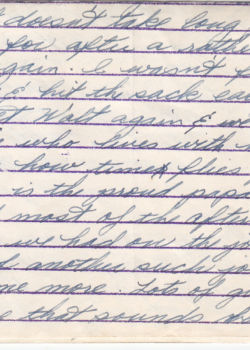 doesn't take long
for after a rath
gain. I wasn't
& hit the sack ea
t Walt again & w
who lives with
how time flies
is the proud papa
most of the afte
we had on the
d another such
me more. Lots of
e that sounds